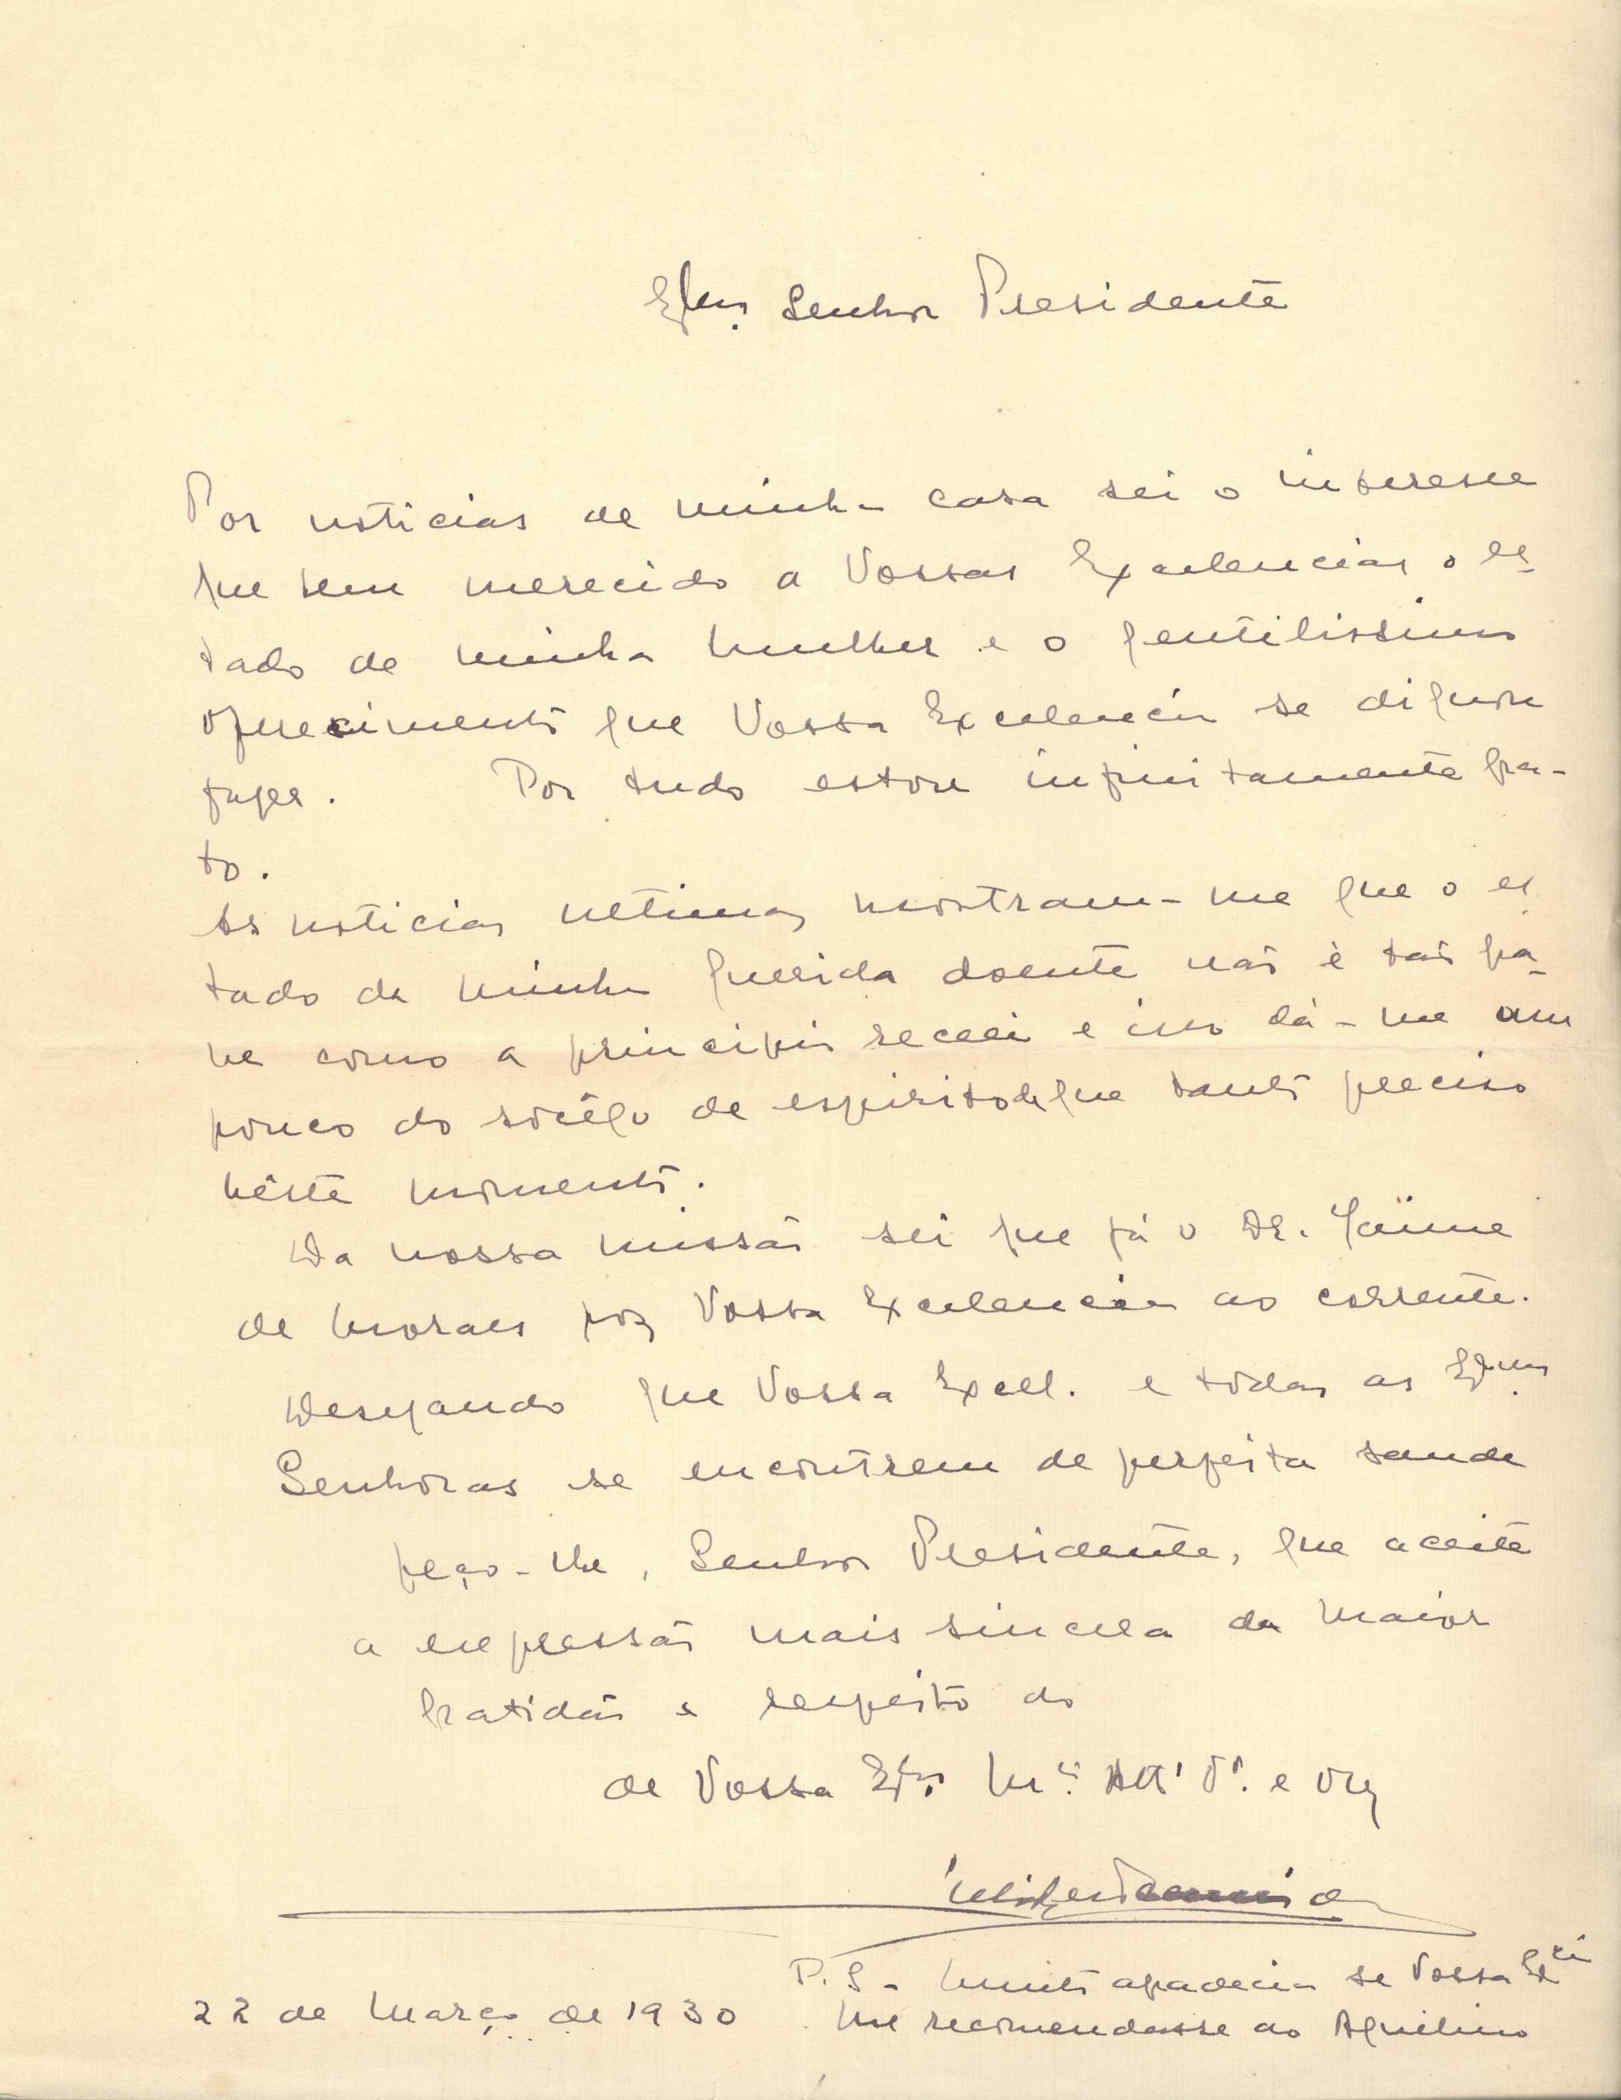 Exmo Senhor Presidente
Por noticias de minha casa sei o interesse
que tem merecido a Vossas Excelencias o es-
tado de minha mulher e o gentilissimo
oferecimento que Vossa Excelencia se dignou
fazer. Por tudo estou infinitamente gra-
to.
As noticias ultimas mostram-me que o es
tado da minha querida doente não é tão gra-
ve como a principio receei e isso dá-me um
pouco do socêgo de espirito de que tanto preciso
nêste momento.
Da nossa missão sei que já o Dr. Jaime
de Moraes poz Vossa Excelencia ao corrente.
Desejando que Vossa Excel. e todas as Exmas
Senhoras se encontrem de perfeita saude
peço-lhe, Senhor Presidente, que aceite
a expressão mais sincera da maior
gratidão e respeito do
de Vossa Exa Mto Atto Vr. e Obg
22 de Março de 1930
P.S - Muito agradecia se Vossa Excia
me recomendasse ao Aquilino